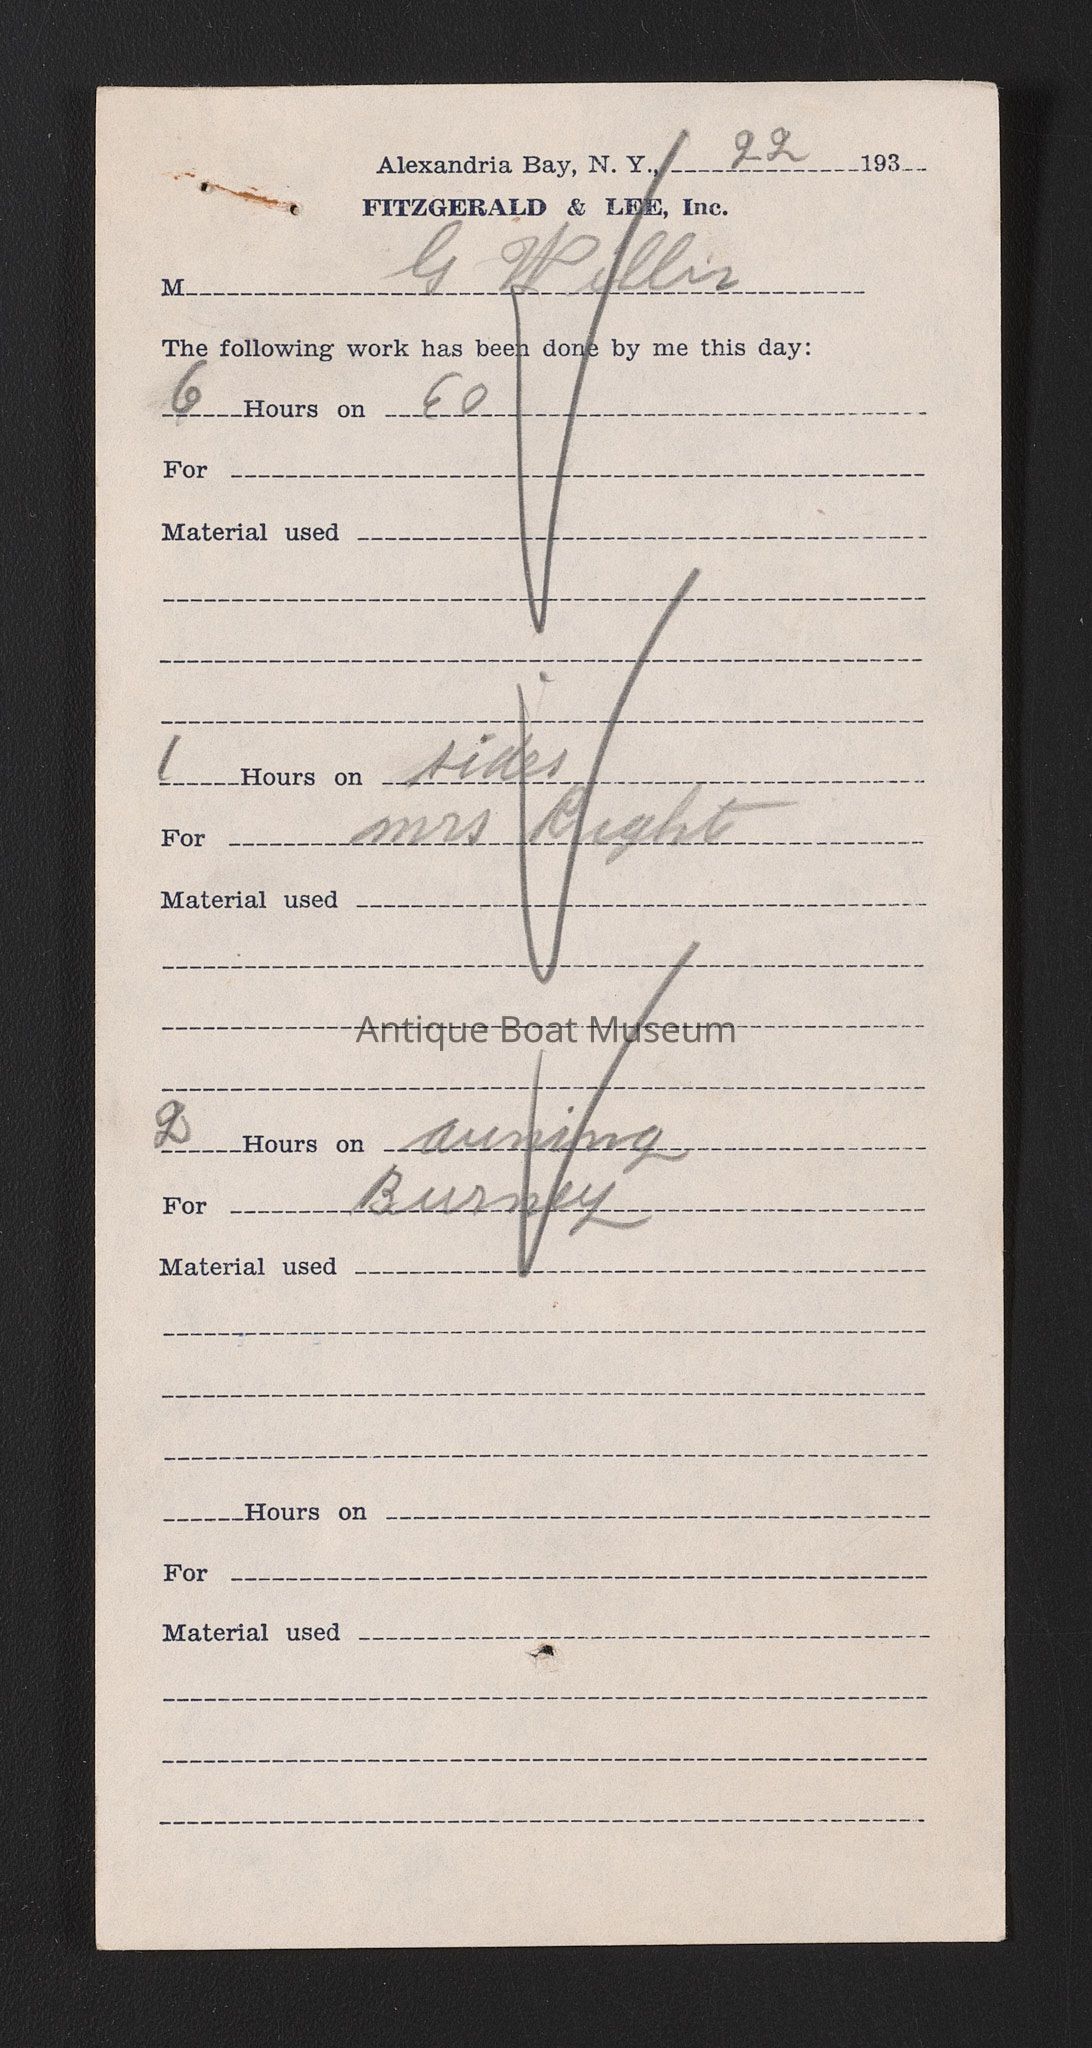 Alexandria Bay, N. Y., 22 193
FITZGERALD & LEE, Inc.
M G Willis
The following work has been done by me this day:
6 Hours on EO
For
Material used
1 Hours on sides
For mrs Right
Material used
Antique Boat Museum
2 Hours on auning
For Burney
Material used
Hours on
For
Material used